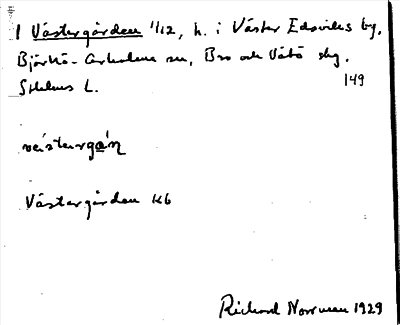 1 Västergården 1/12, h. i Väster Edsviks by,
Björkö-Arholma sn, Bro och Vätö skg,
Sthlms L. 149
Västergården kb
Rickard Norrman 1929